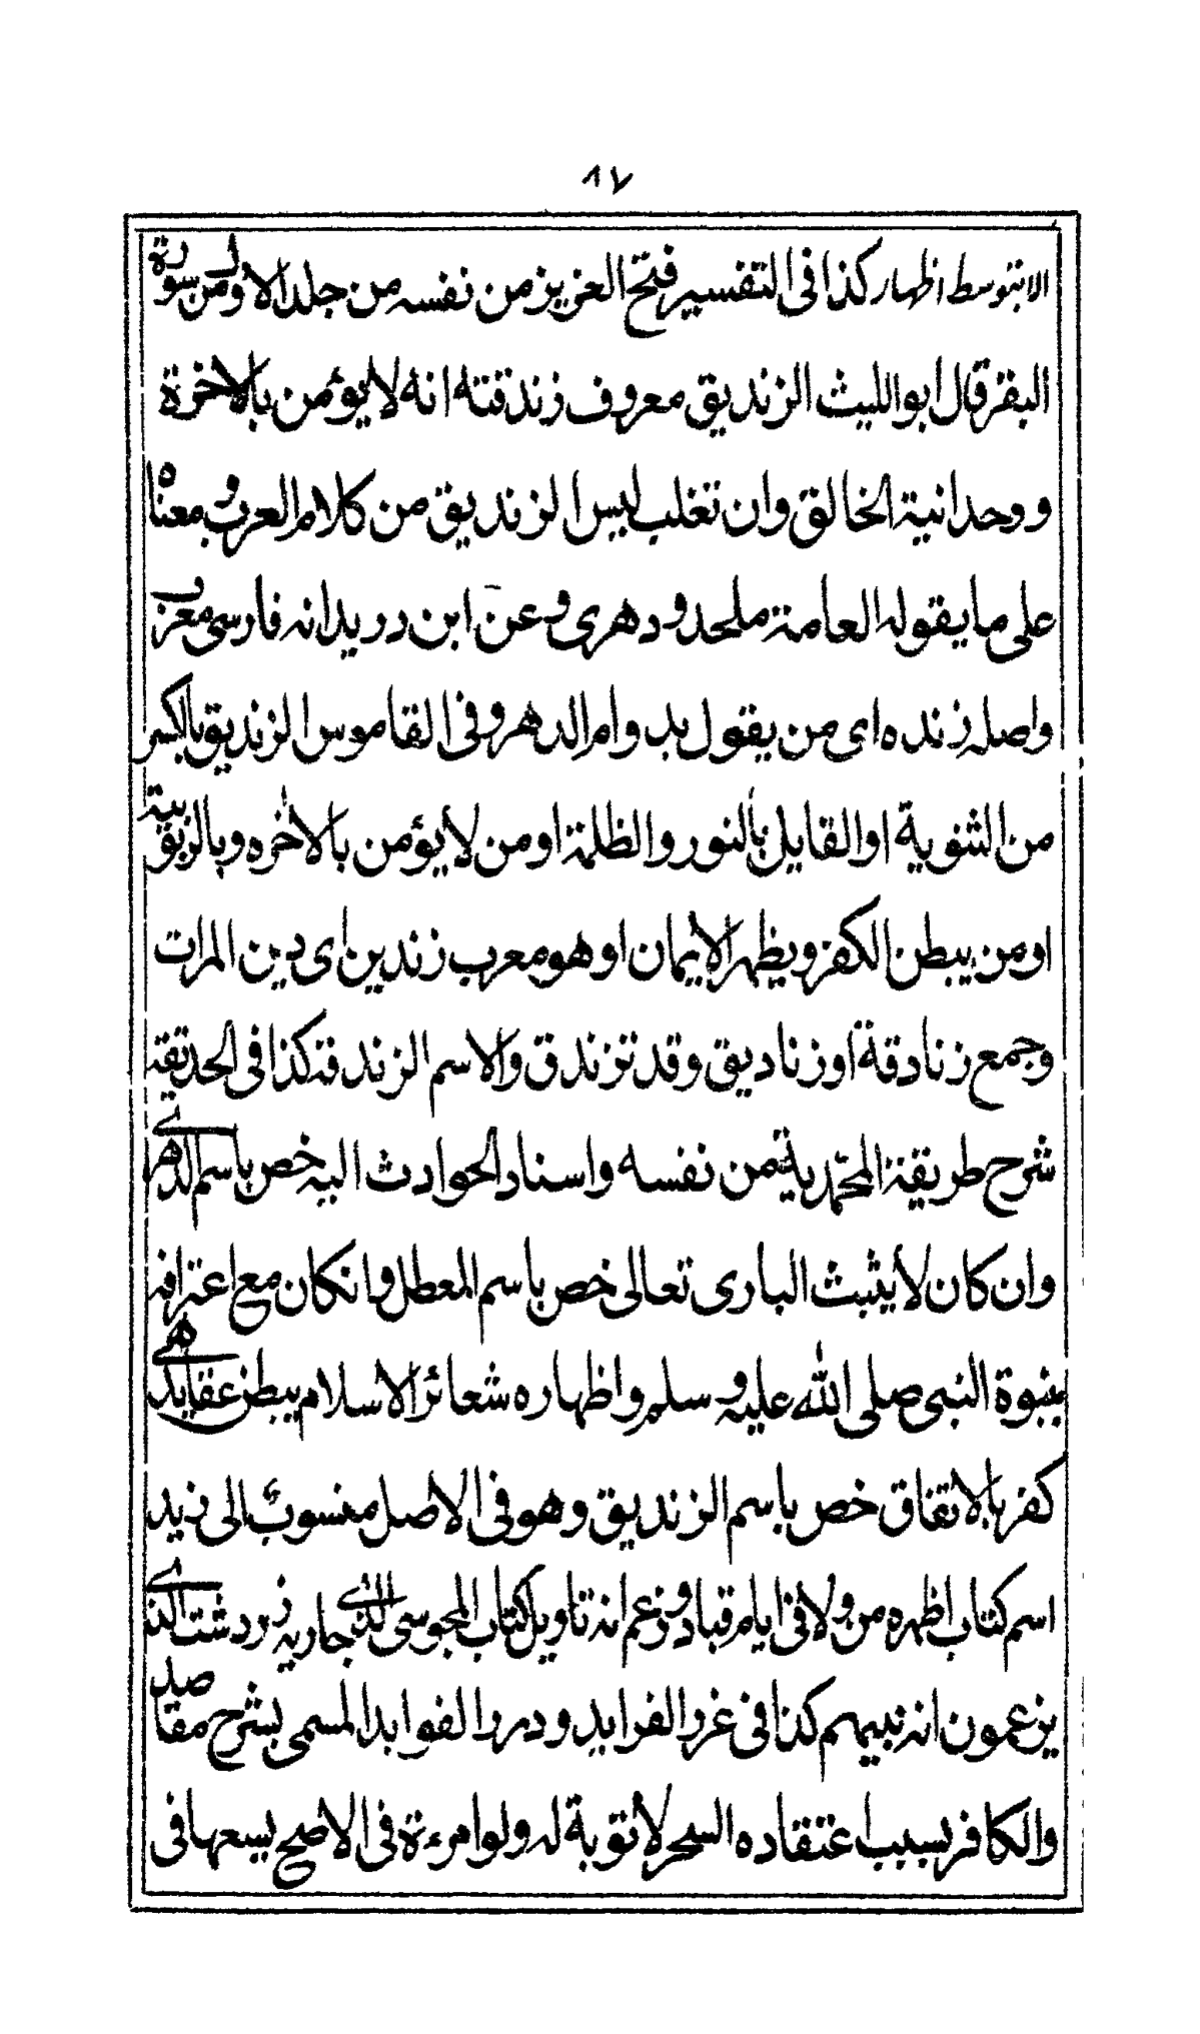 ٨٧
الابتوسط اظهار كذا فى التفسير فتح العزيز من نفسه من جلد الاول من سورة
البقر قال ابو الليث الزنديق معروف زندقته انه لا يؤمن بالاخرة
و وحدانية الخالق وان تغلب ليس الزنديق من كلام العرب و معناه
على ما يقوله العامة ملحد و دهرى و عن ابن دريد انه فارسى معرب
واصله زنده اى من يقول بدوام الدهر و فى القاموس الزنديق بالكسر
من الثنوية او القايل بالنور و الظلمة او من لا يؤمن بالاخره و بالربوبية
او من يبطن الكفر و يظهر الايمان او هو معرب زن دين اى دين المرات
وجمع زنادقة او زناديق و قد تزندق والاسم الزندقة كذا فى الحديقة
شرح طريقة المحمدية من نفسه و اسناد الحوادث اليه خص باسم الدهرى
وان كان لا يثبت البارى تعالى خص باسم المعطل وانكان مع اعترافه
بنبوة النبى صلى الله عليه و سلم و اظهاره شعائر الاسلام يبطن عقايد هى
كفر بالاتفاق خص باسم الزنديق و هو فى الاصل منسوب الى زند
اسم كتاب اظهره من ولا فى ايام قباد و زعم انه تاويل كتاب المجوسى الذى جاء به زردشت الذى
يزعمون انه نبيهم كذا فى غرر الفرايد و درر الفوايد المسمى بشرح مقاصد
والكافر بسبب اعتقاده السحر لا توبة له ولو امرءة فى الاصح يسعها فى